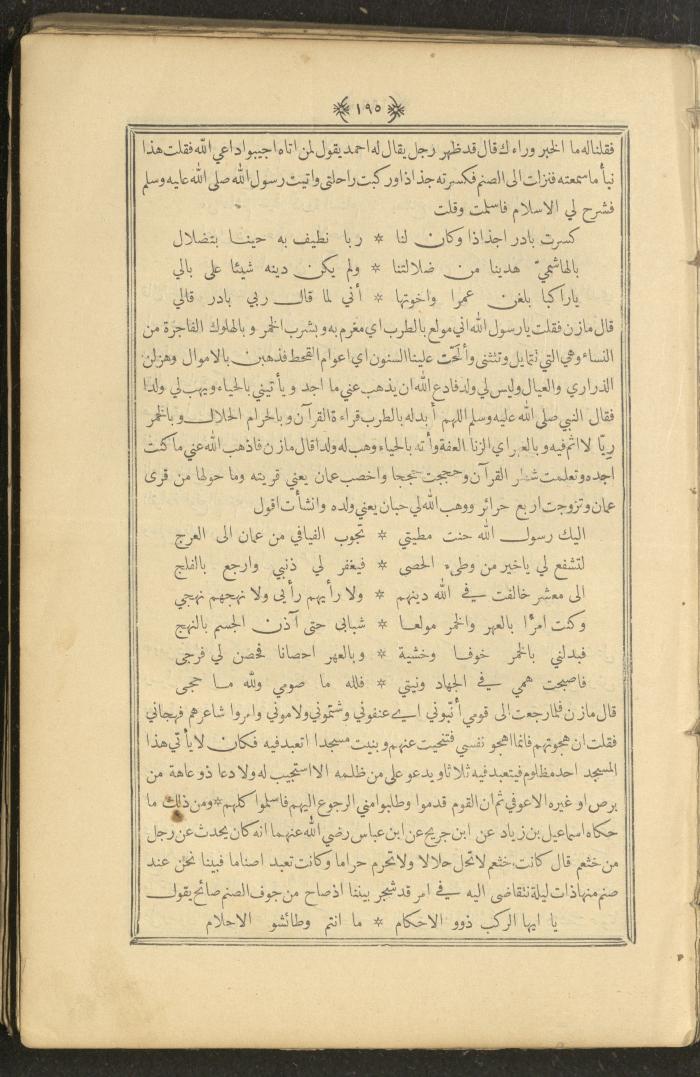 ١٩٥
فقلنا له ما الخبر وراءك قال قد ظهر رجل يقال له احمد يقول لمن اتاه اجيبوا داعي الله فقلت هذا
نبأ ما سمعته فنزات الى الصنم فكسرته جذاذا وركبت راحلتي واتيت رسول الله صلى الله عليه وسلم
فشرح لي الاسلام فاسلمت وقلت
كسرت بادر اجذاذا وكان لنا * ربا نطيف به حينا بتضلال
بالهاشميّ هدينا من ضلالتنا * ولم يكن دينه شيئا على بالي
ياراكبا بلغن عمرا واخوتها * أني لما قال ربي بادر قالي
قال مازن فقلت يارسول الله اني مولع بالطرب اي مغرم به وبشرب الخمر وبالهلوك الفاجرة من
النساء وهي التي تتمايل وتتثنى وألحّت علينا السنون اي اعوام القحط فذهبن بالاموال وهزلن
الذراري والعيال وليس لي ولد فادع الله ان يذهب عني ما اجد ويأتيني بالحياء ويهب لي ولدا
فقال النبي صلى الله عليه وسلم اللهم أبدله بالطرب قراءة القرآن وبالحرام الحلال وبالخمر
ريّا لا اثم فيه وبالعهر اي الزنا العفة وأته بالحياء وهب له ولدا قال مازن فاذهب الله عني ما كنت
اجده وتعلمت شطر القرآن وحججت حججا واخصب عمان يعني قريته وما حولها من قرى
عمان وتزوجت اربع حرائر ووهب الله لي حبان يعني ولده وانشأت اقول
اليك رسول الله حنت مطيتي * تجوب الفيافي من عمان الى العرج
لتشفع لي ياخير من وطىء الحصى * فيغفر لي ذنبي وارجع بالفلج
الى معشر خالفت في الله دينهم * ولا رأيهم رأيى ولا نهجهم نهجي
وكنت امرًا بالعهر والخمر مولعا * شبابى حتى آذن الجسم بالنهج
فبدلني بالخمر خوفا وخشية * وبالعهر احصانا فحصن لي فرجى
فاصبحت همي في الجهاد ونيتي * فلله ما صومي ولله ما حجى
قال مازن فلما رجعت الى قومي أنّبوني اي عنفوني وشتموني ولاموني وامروا شاعرهم فهجاني
فقلت ان هجوتهم فانما اهجو نفسي فتنحيت عنهم وبنيت مسجدا اتعبد فيه فكان لا يأتي هذا
المسجد احد مظلوم فيتعبد فيه ثلاثا ويدعو على من ظلمه الا استجيب له ولا دعا ذو عاهة من
برص او غيره الا عوفي ثم ان القوم قدموا وطلبوا مني الرجوع اليهم فاسلموا كلهم * ومن ذلك ما
حكاه اسماعيل بن زياد عن ابن جريج عن ابن عباس رضي الله عنهما انه كان يحدث عن رجل
من خثعم قال كانت خثعم لا تحل حلالا ولا تحرم حراما وكانت تعبد اصناما فبينا نحن عند
صنم منها ذات ليلة نتقاضى اليه في امر قد شجر بيننا اذ صاح من جوف الصنم صائح يقول
يا ايها الركب ذوو الاحكام * ما انتم وطائشو الاحلام